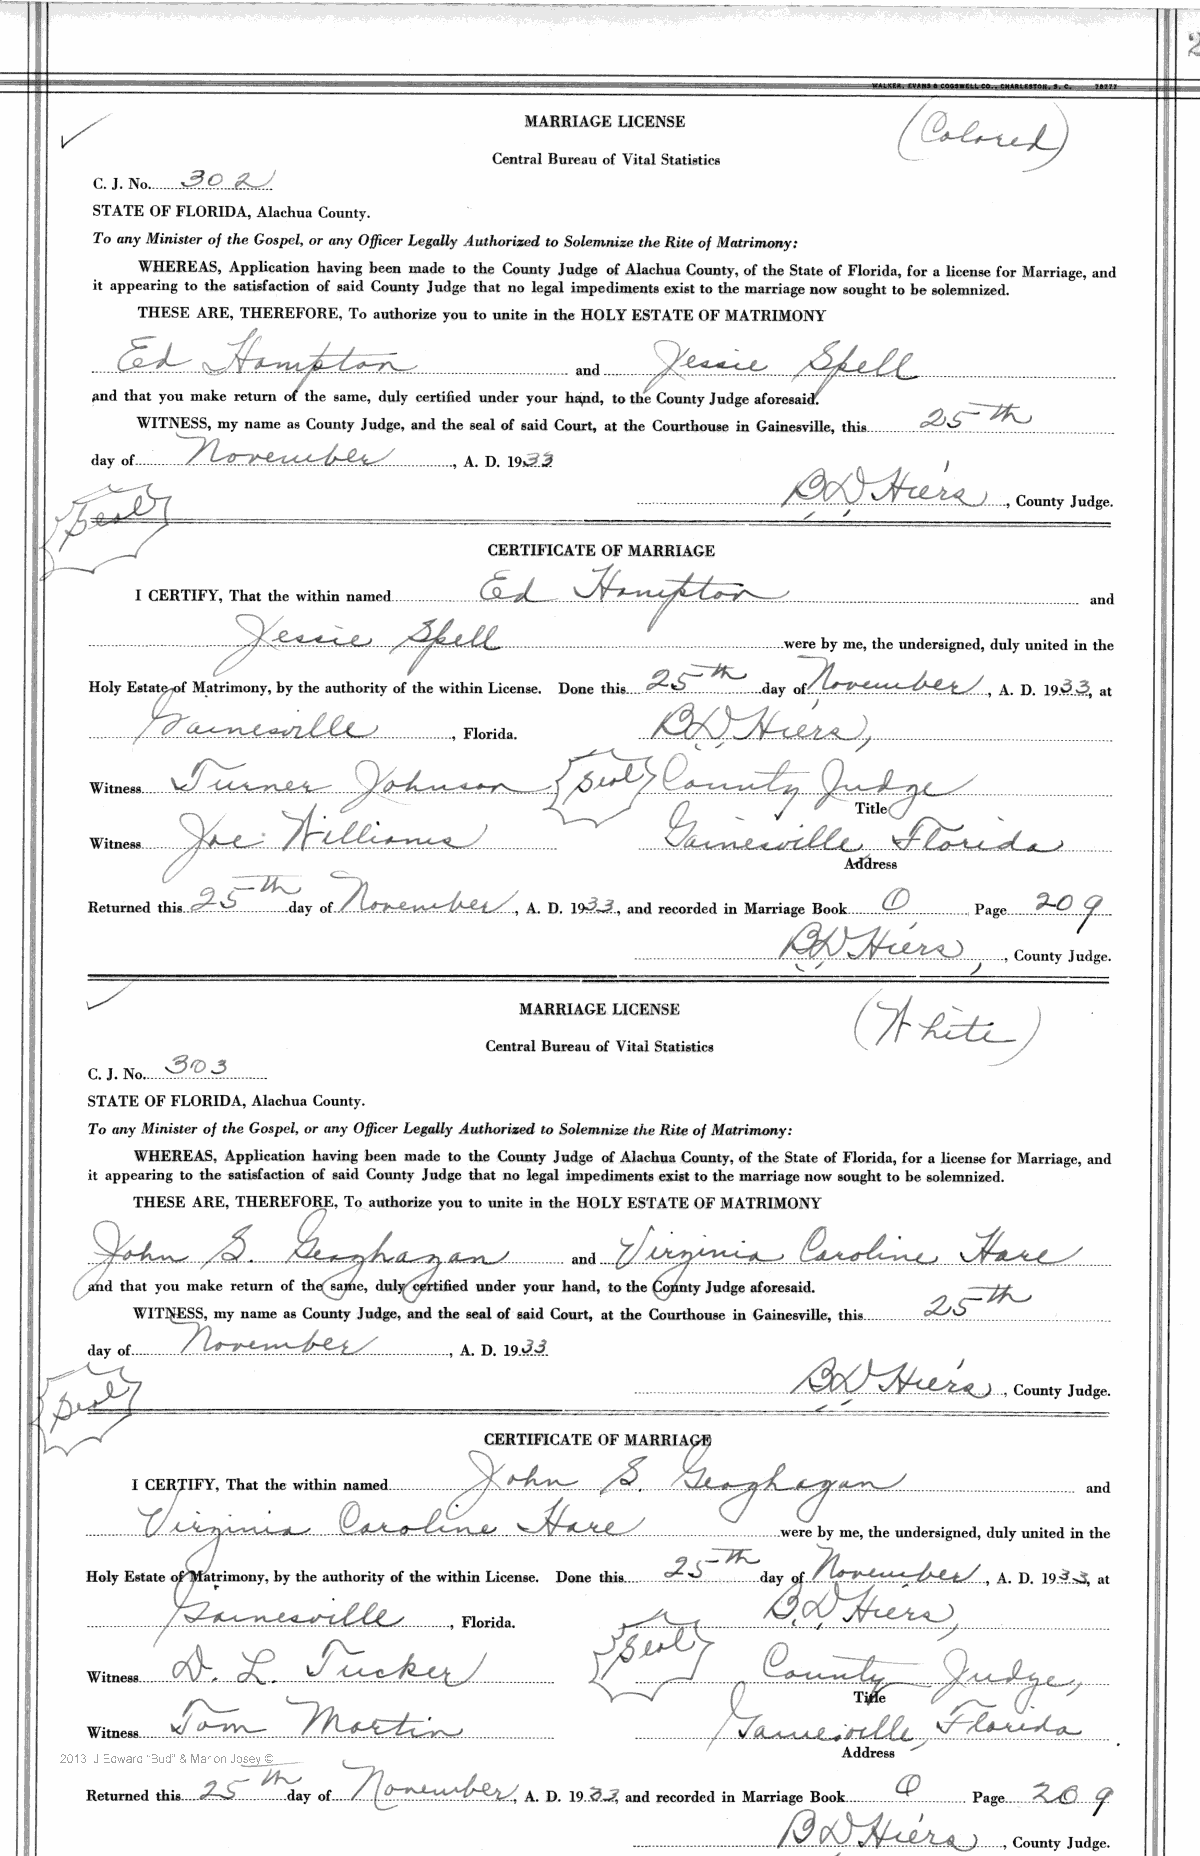 2
WALKER, EVANS & COGSWELL CO., CHARLESTON, S. C. 78777
MARRIAGE LICENSE
(Colored)
Central Bureau of Vital Statistics
C. J. No. 302
STATE OF FLORIDA, Alachua County.
To any Minister of the Gospel, or any Officer Legally Authorized to Solemnize the Rite of Matrimony:
WHEREAS, Application having been made to the County Judge of Alachua County, of the State of Florida, for a license for Marriage, and
it appearing to the satisfaction of said County Judge that no legal impediments exist to the marriage now sought to be solemnized.
THESE ARE, THEREFORE, To authorize you to unite in the HOLY ESTATE OF MATRIMONY
Ed Hampton and Jessie Spell
and that you make return of the same, duly certified under your hand, to the County Judge aforesaid.
WITNESS, my name as County Judge, and the seal of said Court, at the Courthouse in Gainesville, this 25th
day of November, A. D. 1933
BD Hiers, County Judge.
Seal
CERTIFICATE OF MARRIAGE
I CERTIFY, That the within named Ed Hampton and
Jessie Spell were by me, the undersigned, duly united in the
Holy Estate of Matrimony, by the authority of the within License. Done this 25th day of November, A. D. 1933, at
Gainesville, Florida. BD Hiers,
Witness Turner Johnson Seal County Judge
Title
Witness Joe Williams Gainesville, Florida
Address
Returned this 25th day of November, A. D. 1933, and recorded in Marriage Book O Page 209
BD Hiers, County Judge.
MARRIAGE LICENSE
(White)
Central Bureau of Vital Statistics
C. J. No. 303
STATE OF FLORIDA, Alachua County.
To any Minister of the Gospel, or any Officer Legally Authorized to Solemnize the Rite of Matrimony:
WHEREAS, Application having been made to the County Judge of Alachua County, of the State of Florida, for a license for Marriage, and
it appearing to the satisfaction of said County Judge that no legal impediments exist to the marriage now sought to be solemnized.
THESE ARE, THEREFORE, To authorize you to unite in the HOLY ESTATE OF MATRIMONY
John S. Geoghagan and Virginia Caroline Hare
and that you make return of the same, duly certified under your hand, to the County Judge aforesaid.
WITNESS, my name as County Judge, and the seal of said Court, at the Courthouse in Gainesville, this 25th
day of November, A. D. 1933
BD Hiers, County Judge.
Seal
CERTIFICATE OF MARRIAGE
I CERTIFY, That the within named John S. Geoghagan and
Virginia Caroline Hare were by me, the undersigned, duly united in the
Holy Estate of Matrimony, by the authority of the within License. Done this 25th day of November, A. D. 1933, at
Gainesville, Florida. B.D. Hiers,
Witness D. L. Tucker Seal County Judge,
Title
Witness Tom Martin Gainesville, Florida
Address
2013 J Edward "Bud" & Marion Josey ©
Returned this 25th day of November, A. D. 1933, and recorded in Marriage Book O Page 209
BD Hiers, County Judge.